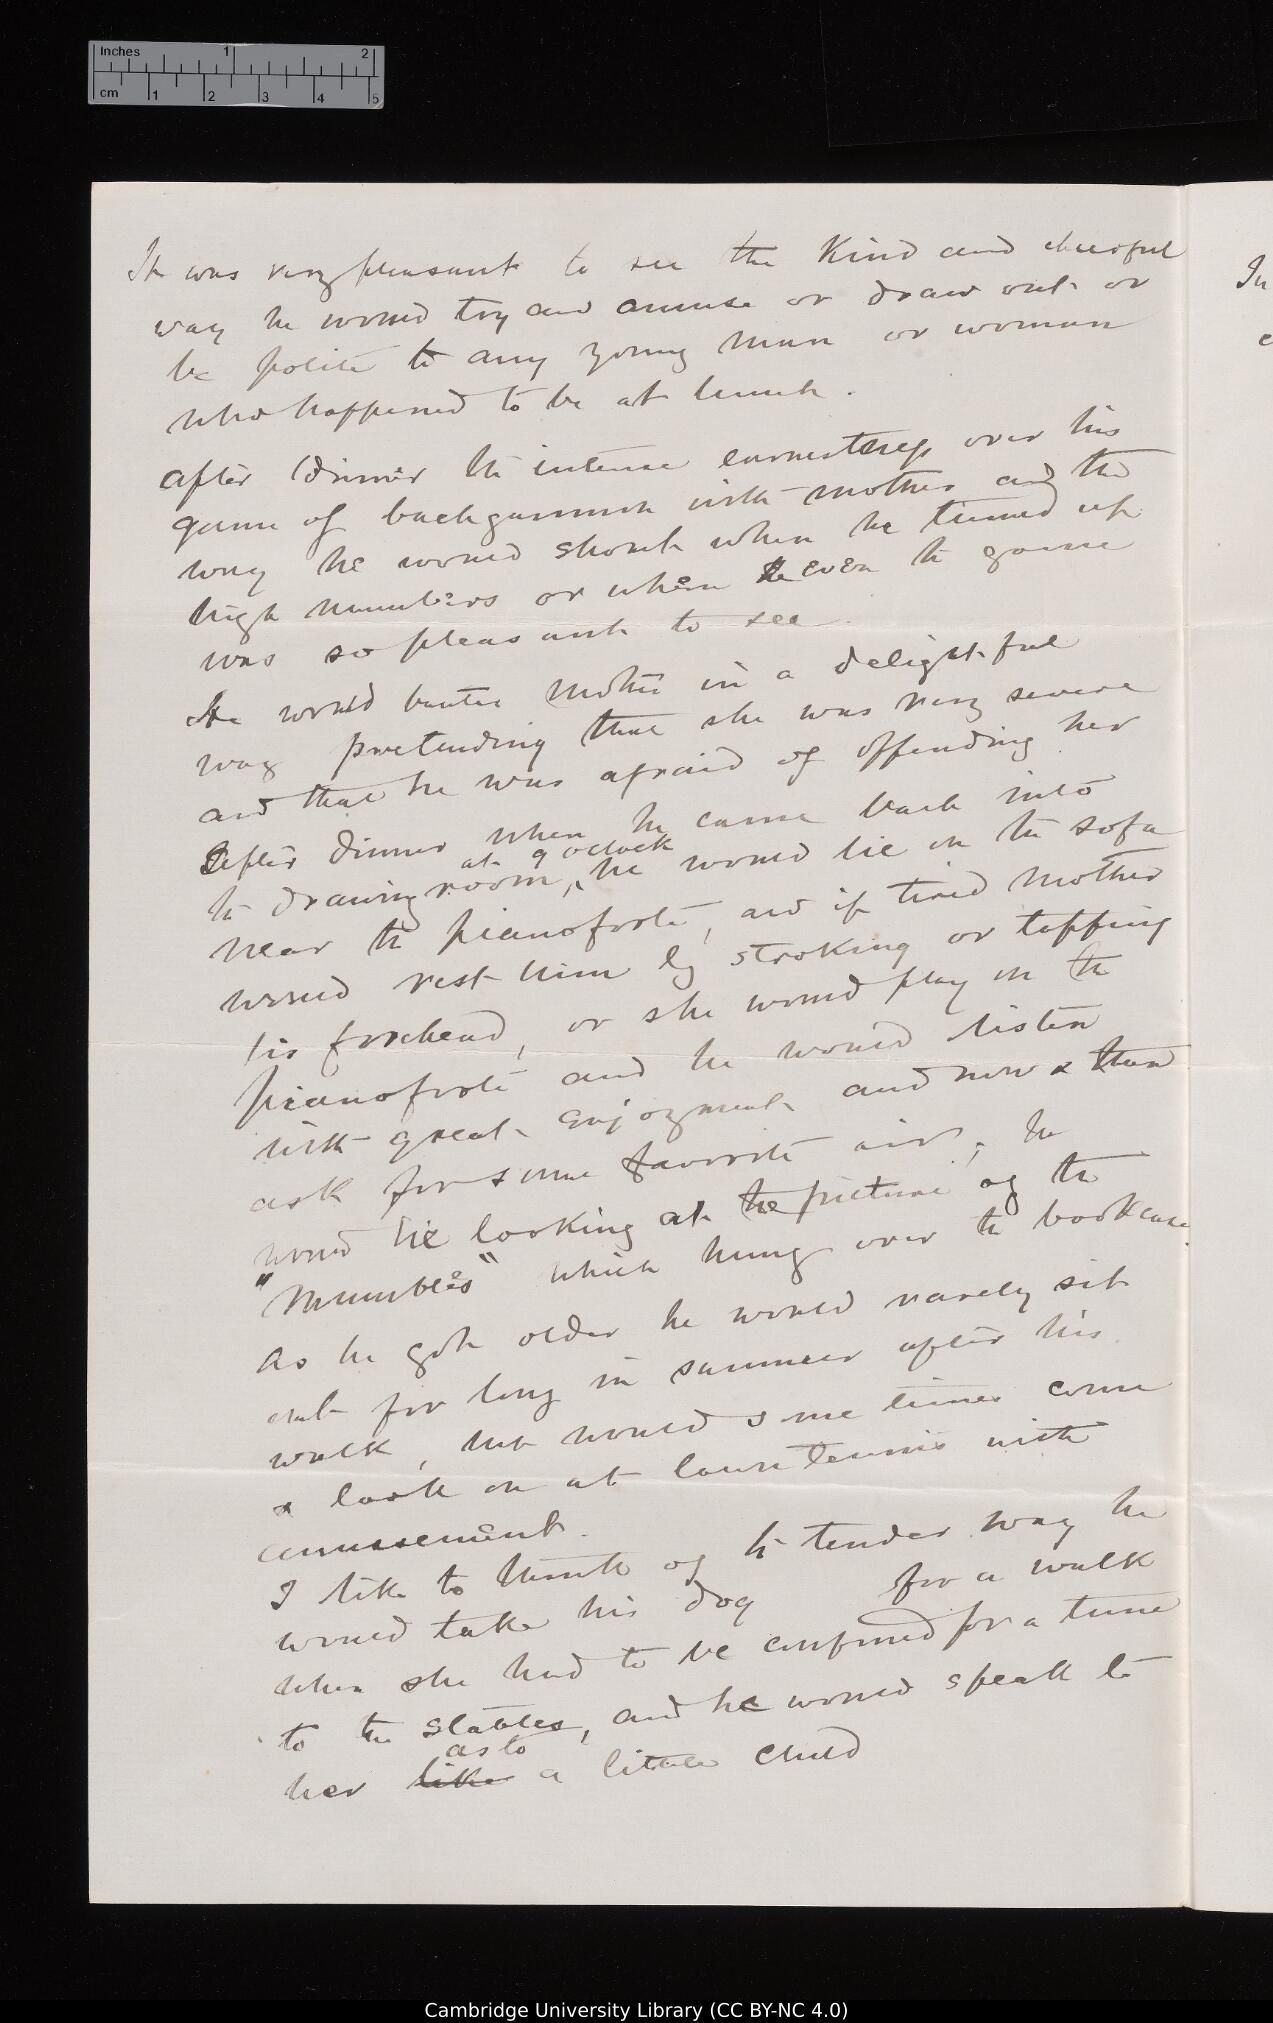 Inches 1 2
cm 1 2 3 4 5
It was very pleasant to see the kind and cheerful
way he would try and amuse or draw out or
be polite to any young man or woman
who happened to be at lunch.
After dinner the intense earnestness over his
game of backgammon with mother and the
way he would shout when he turned up
high numbers or when even the game
was so pleasant to see.
He would banter mother in a delightful
way pretending that she was very severe
and that he was afraid of offending her
After dinner when he came back into
at 9 oclock
the drawing room, he would lie on the sofa
near the pianoforte, and if tired mother
would rest him by stroking or tapping
his forehead, or she would play on the
pianoforte and he would listen
with great enjoyment and now & then
ask for some favorite air, he
would lie looking at the picture of the
"Mumbles" which hung over the bookcase.
As he got older he would rarely sit
out for long in summer after his
walk, but would sometimes come
& look on at lawn tennis with
amusement.
I like to think of the tender way he
would take his dog for a walk
when she had to be confined for a time
to the stables, and he would speak to
as to
her like a little child
In
Cambridge University Library (CC BY-NC 4.0)